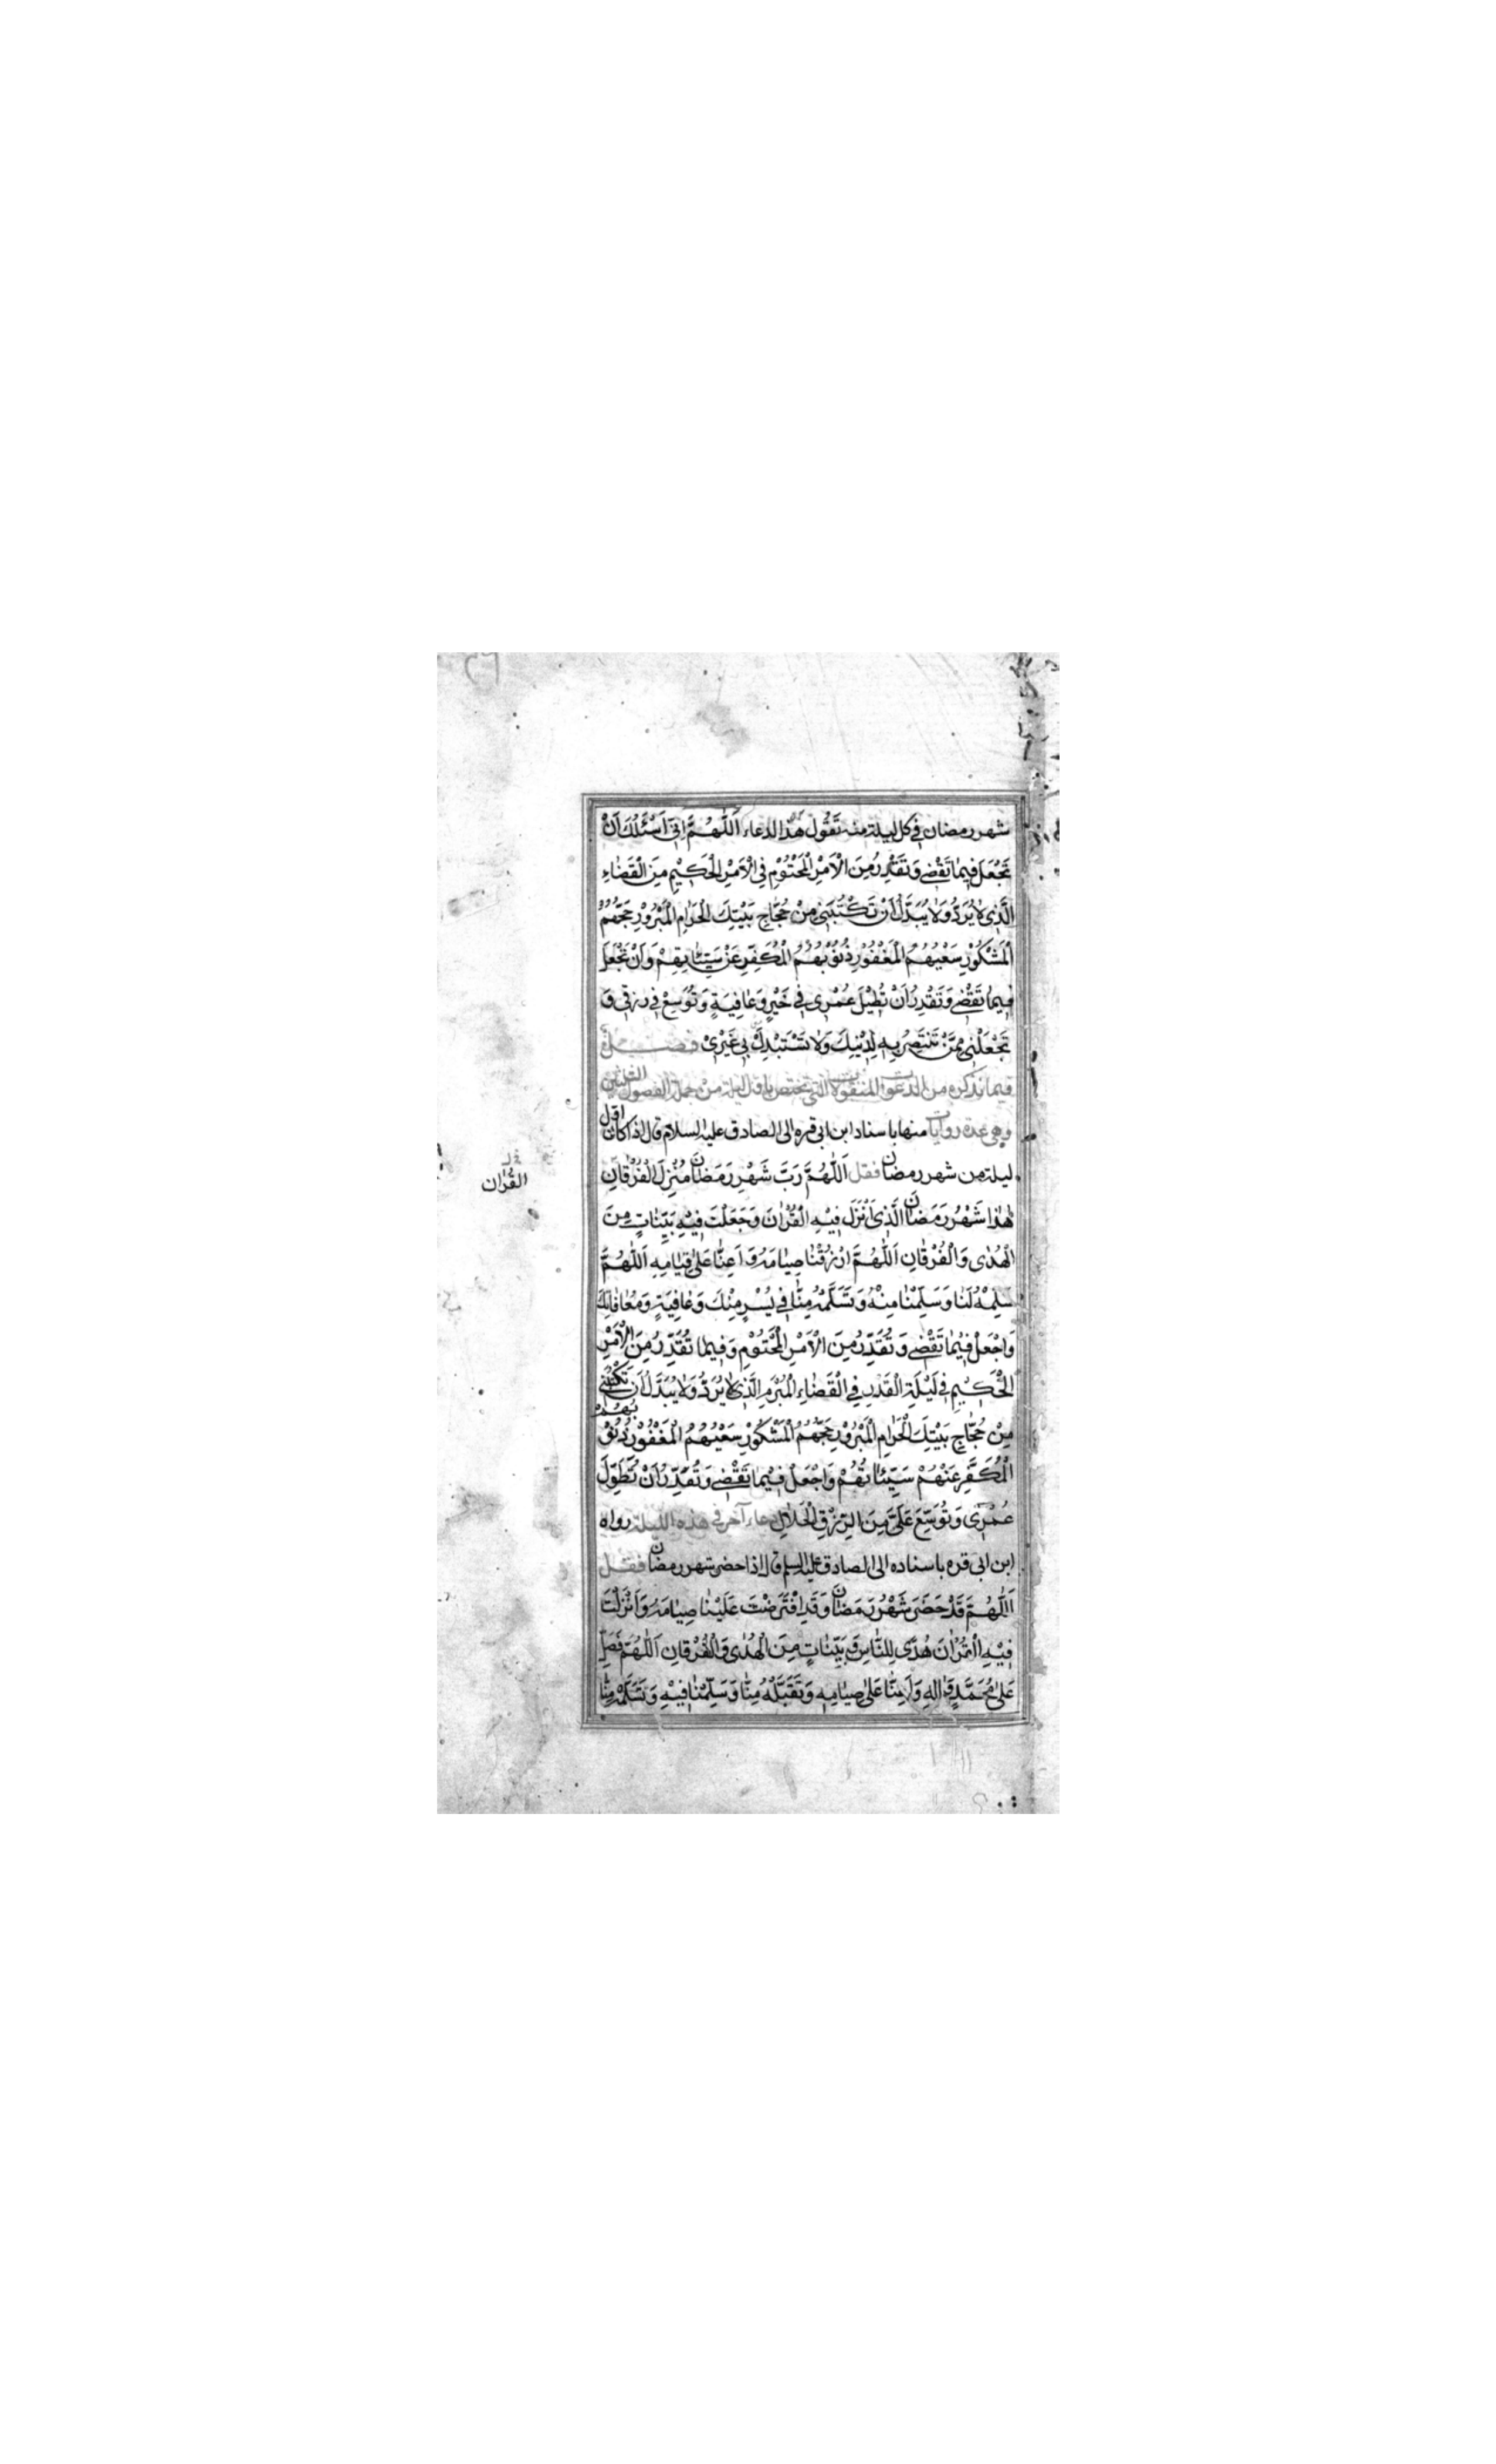 شهر رمضان في كل ليلة منه تَقُول هذا الدعاء اَللّٰهُمَّ اِنّي اَسْئَلُكَ اَنْ
تَجْعَلَ فيمٰا تَقْضي وَتَقْدِرُ مِنَ الْاَمْرِ الْمَحْتُوْمِ فِي الْاَمْرِ الْحَكيْمِ مِنَ الْقَضٰاءِ
الَّذِي لٰا يُرَدُّ وَلٰا يُبَدَّلُ اَنْ تَكْتُبَنِي مِنْ حُجّٰاجِ بَيْتِكَ الْحَرٰامِ الْمَبْرُوْرِ حَجُّهُمْ
الْمَشْكُوْرِ سَعْيُهُمُ الْمَغْفُوْرِ ذُنُوْبُهُمُ الْمُكَفَّرِ عَنْ سَيِّئٰاتِهِمْ وَاَنْ تَجْعَلَ
فيمٰا تَقْضي وَتَقْدِرُ اَنْ تُطيْلَ عُمْري في خَيْرٍ وَعٰافِيَةٍ وَتُوَسِّعَ في رِزقي وَ
تَجْعَلَنِي مِمَّنْ تَنْتَصِرُ بِهِ لِدِيْنِكَ وَلٰا تَسْتَبْدِلْ بي غَيْرِيْ فصل
فيما نذكره من الدعوات المنقولات التي تختص باول ليلة من جملة الفصول الثلثين
وهي عدة روايات منها باسناد ابن ابي قره الى الصادق عليه السلام قال اذا كان اول
ليلة من شهر رمضان فقل اَللّٰهُمَّ رَبَّ شَهْرِ رَمَضٰانَ مُنْزِلَ الْفُرْقٰانِ
القُرْاٰن
هٰذٰا شَهْرُ رَمَضٰانَ الَّذي اَنْزَلَ فيْهِ الْقُرْاٰنَ وَجَعَلْتَ فيْهِ بَيِّنٰاتٍ مِنَ
الْهُدٰى وَالْفُرْقٰانِ اَللّٰهُمَّ ارْزُقْنٰا صِيٰامَهُ وَاَعِنّٰا عَلىٰ قِيٰامِهِ اَللّٰهُمَّ
سَلِّمْهُ لَنٰا وَسَلِّمْنٰا مِنْهُ وَتَسَلَّمْهُ مِنّٰا في يُسْرٍ مِنْكَ وَعٰافِيَةٍ وَمُعٰافٰاتِكَ
وَاجْعَلْ فيْمٰا تَقْضي وَتُقَدِّرُ مِنَ الْاَمْرِ الْمَحْتُوْمِ وَفيمٰا تُقَدِّرُ مِنَ الْاَمْرِ
الْحَكيْمِ في لَيْلَةِ الْقَدْرِ فِي الْقَضٰاءِ الْمُبْرَمِ الَّذي لٰا يُرَدُّ وَلٰا يُبَدَّلُ اَنْ تَكْتُبَني
مِنْ حُجّٰاجِ بَيْتِكَ الْحَرٰامِ الْمَبْرُوْرِ حَجُّهُمُ الْمَشْكُوْرِ سَعْيُهُمُ الْمَغْفُوْرِ ذُنُوْبُهُمُ
الْمُكَفَّرِ عَنْهُمْ سَيِّئٰاتُهُمْ وَاجْعَلْ فيْمٰا تَقْضي وَتُقَدِّرُ اَنْ تُطَوِّلَ
عُمْرِي وَتُوَسِّعَ عَلَيَّ مِنَ الرِّزْقِ الْحَلٰالِ دعاء آخر في هذه الليلة رواه
ابن ابي قره باسناده الى الصادق عليه السلم قال اذا حضر شهر رمضان فقل
اَللّٰهُمَّ قَدْ حَضَرَ شَهْرُ رَمَضٰانَ وَقَدِ افْتَرَضْتَ عَلَيْنٰا صِيٰامَهُ وَاَنْزَلْتَ
فيْهِ الْقُرْاٰنَ هُدًى لِلنّٰاسِ وَبَيِّنٰاتٍ مِنَ الْهُدٰى وَالْفُرْقٰانِ اَللّٰهُمَّ فَصَلِّ
عَلىٰ مُحَمَّدٍ وَاٰلِهِ وَاَعِنّٰا عَلىٰ صِيٰامِهِ وَتَقَبَّلْهُ مِنّٰا وَسَلِّمْنٰا فيْهِ وَتَسَلَّمْهُ مِنّٰا